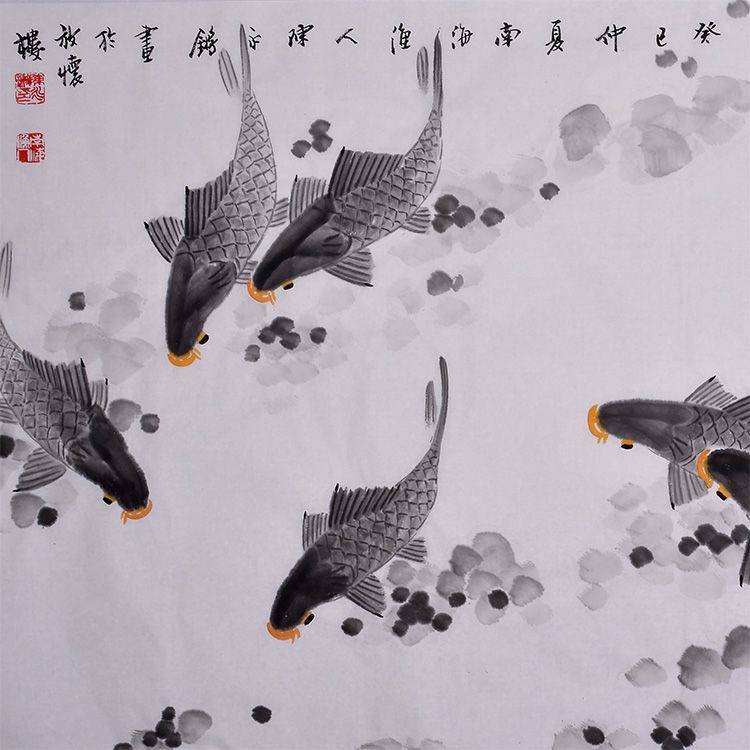 癸巳仲夏南海漁人陳永鏘畫於
放懷
樓